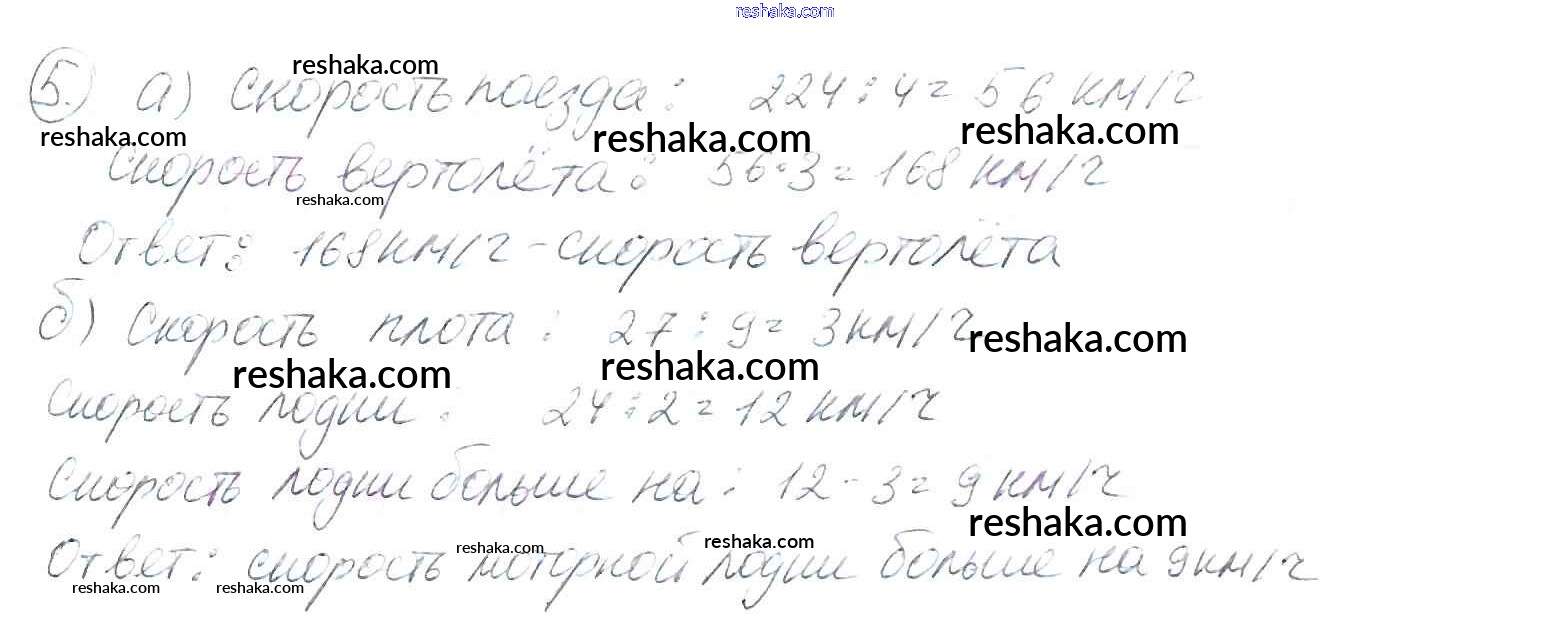 reshaka.com
5. а) Скорость поезда: 224 : 4 = 56 км/ч
Скорость вертолёта: 56·3 = 168 км/ч
Ответ: 168 км/ч - скорость вертолёта
б) Скорость плота: 27 : 9 = 3 км/ч
Скорость лодки: 24 : 2 = 12 км/ч
Скорость лодки больше на: 12 - 3 = 9 км/ч
Ответ: скорость моторной лодки больше на 9 км/ч
reshaka.com
reshaka.com
reshaka.com
reshaka.com
reshaka.com
reshaka.com
reshaka.com
reshaka.com
reshaka.com
reshaka.com
reshaka.com
reshaka.com
reshaka.com